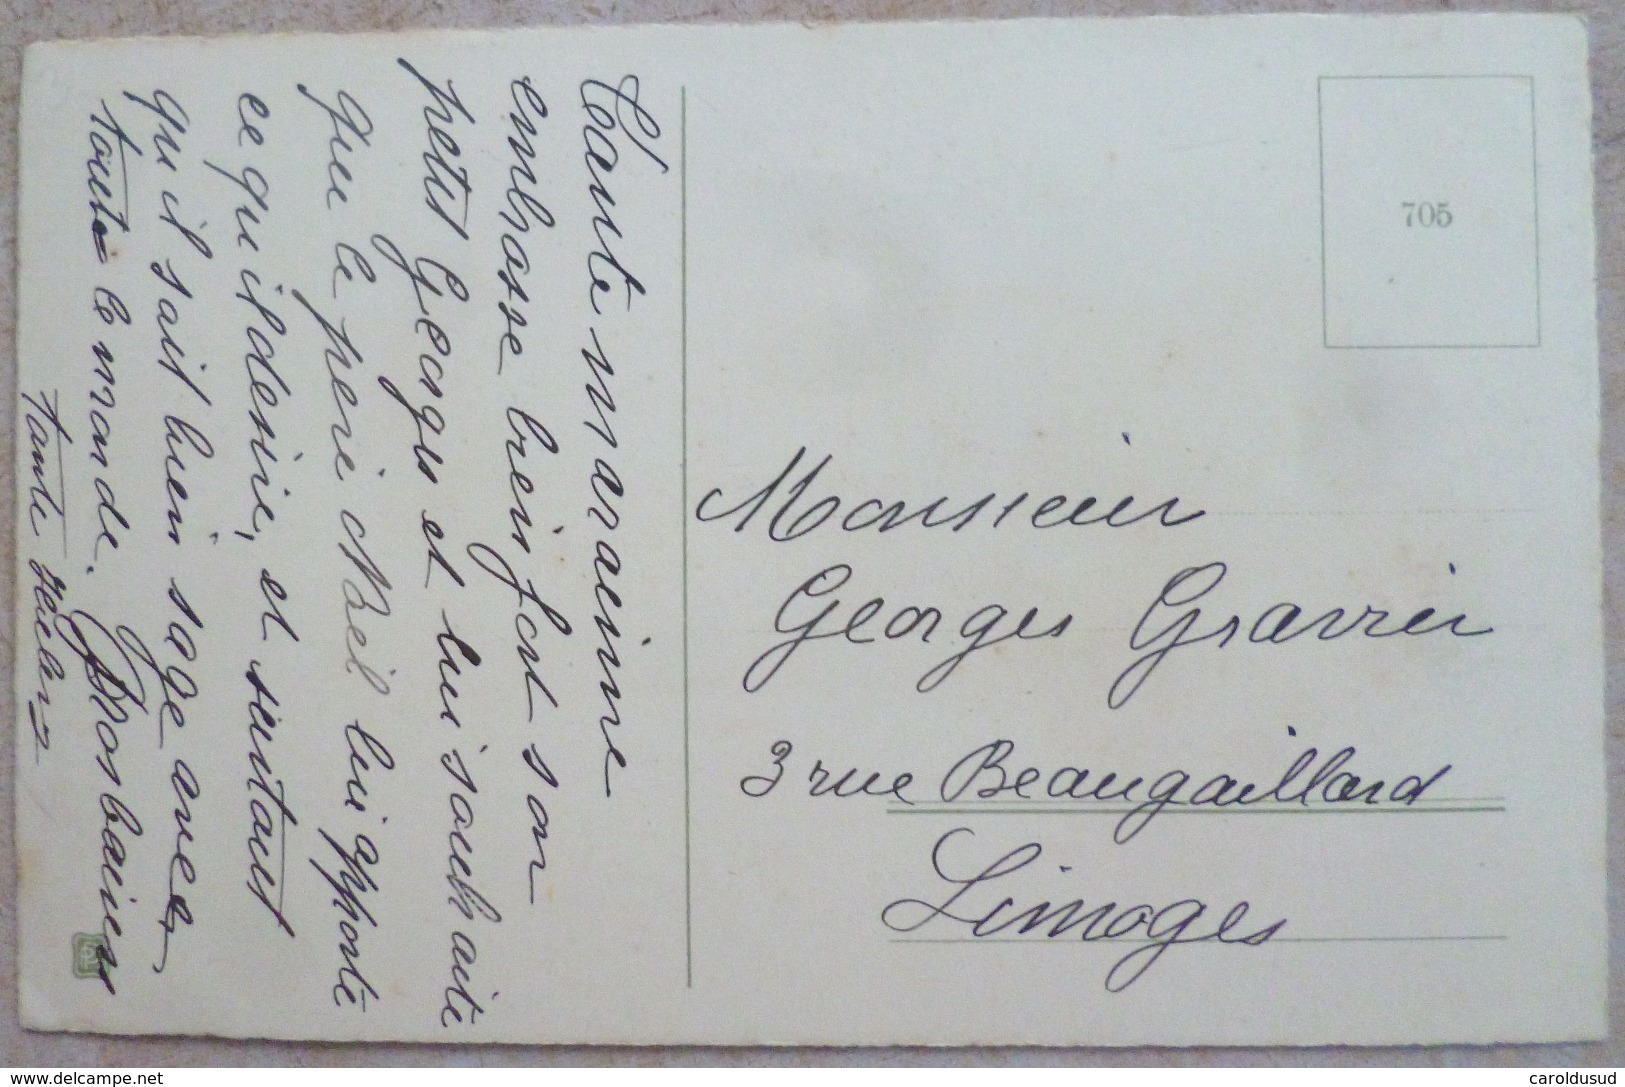 Tante marraine
embrasse bien fort son
petit Georges et lui souhaite
que le père Noël lui apporte
ce qu'il désire, et surtout
qu'il soit bien sage avec
tout le monde. Gros baisers
tante
705
Monsieur
Georges Gravier
3 rue Beaugaillard
Limoges
www.delcampe.net
caroldusud